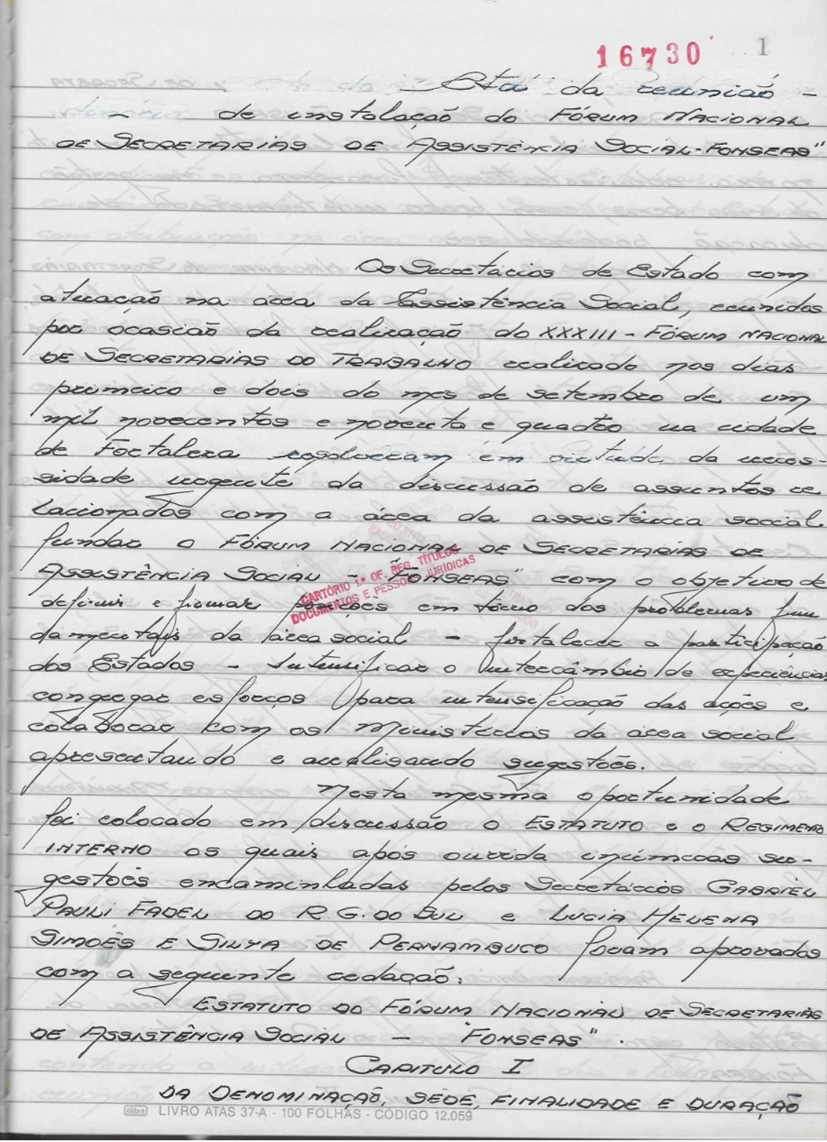 16730 1
Ata da reunião –
– de instalação do FÓRUM NACIONAL
DE SECRETARIAS DE ASSISTÊNCIA SOCIAL-FONSEAS"
Os Secretários de Estado com
atuação na área da Assistência Social, reunidos
por ocasião da realização do XXXIII - FÓRUM NACIONAL
DE SECRETARIAS DO TRABALHO realizado nos dias
primeiro e dois do mes de setembro de um
mil novecentos e noventa e quatro na cidade
de Fortaleza resolveram em virtude da neces-
sidade urgente da discussão de assuntos re
lacionados com a área da assistência social
fundar o FÓRUM NACIONAL DE SECRETARIAS DE
ASSISTÊNCIA SOCIAL - "FONSEAS" com o objetivo de
definir e firmar posições em tôrno dos problemas fun
damentais da área social - fortalecer a participação
dos Estados - Intensificar o intercâmbio de experiências
congregar esforços para intensificação das ações e
colaborar com os Ministérios da área social
apresentando e analisando sugestões.
CARTÓRIO 1.º OF. REG. TÍTULOS
DOCUMENTOS E PESSOAS JURÍDICAS
Nesta mesma oportunidade
foi colocado em discussão o ESTATUTO e o REGIMENTO
INTERNO os quais após ouvida inúmeras su-
gestões encaminhadas pelos Secretários GABRIEL
PAULI FADEL DO R.G. DO SUL e LUCIA HELENA
SIMÕES E SILVA DE PERNAMBUCO foram aprovados
com a seguinte redação:
ESTATUTO DO FÓRUM NACIONAL DE SECRETARIAS
DE ASSISTÊNCIA SOCIAL – "FONSEAS".
CAPITULO I
DA DENOMINAÇÃO, SEDE, FINALIDADE E DURAÇÃO
LIVRO ATAS 37-A - 100 FOLHAS - CÓDIGO 12.059